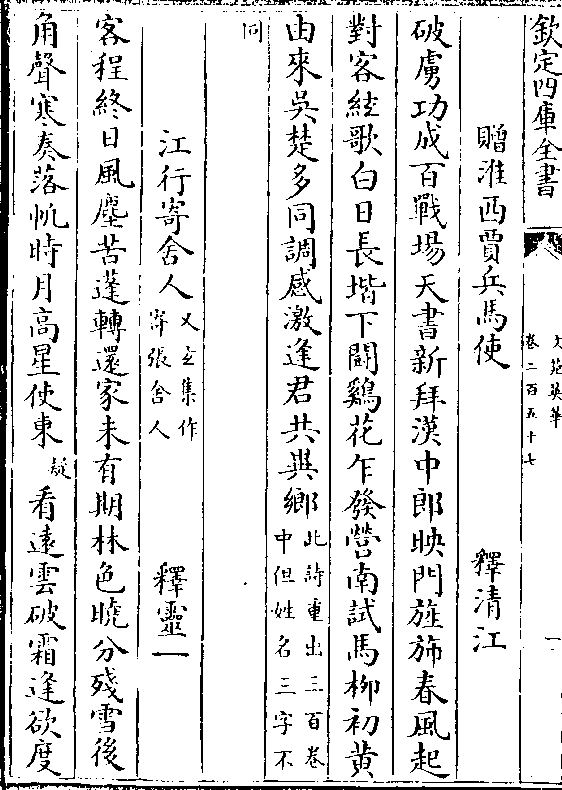 欽定四庫全書
文苑英華
卷二百五十七
一
贈淮西賈兵馬使 釋清江
破虜功成百戰場天書新拜漢中郎映門旌斾春風起
對客絃歌白日長堦下鬪鷄花乍發營南試馬柳初黄
由來吳楚多同調感激逢君共異鄉此詩重出三百卷
中但姓名三字不
同
江行寄舍人又玄集作
寄張舍人 釋靈一
客程終日風塵苦蓬轉還家未有期林色曉分殘雪後
角聲寒奏落帆時月高星使東疑看遠雲破霜逢欲度